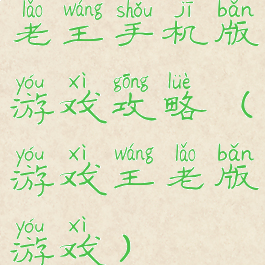 lǎo wáng shǒu jī bǎn
老王手机版
yóu xì gōng lüè
游戏攻略（
yóu xì wáng lǎo bǎn
游戏王老版
yóu xì
游戏）